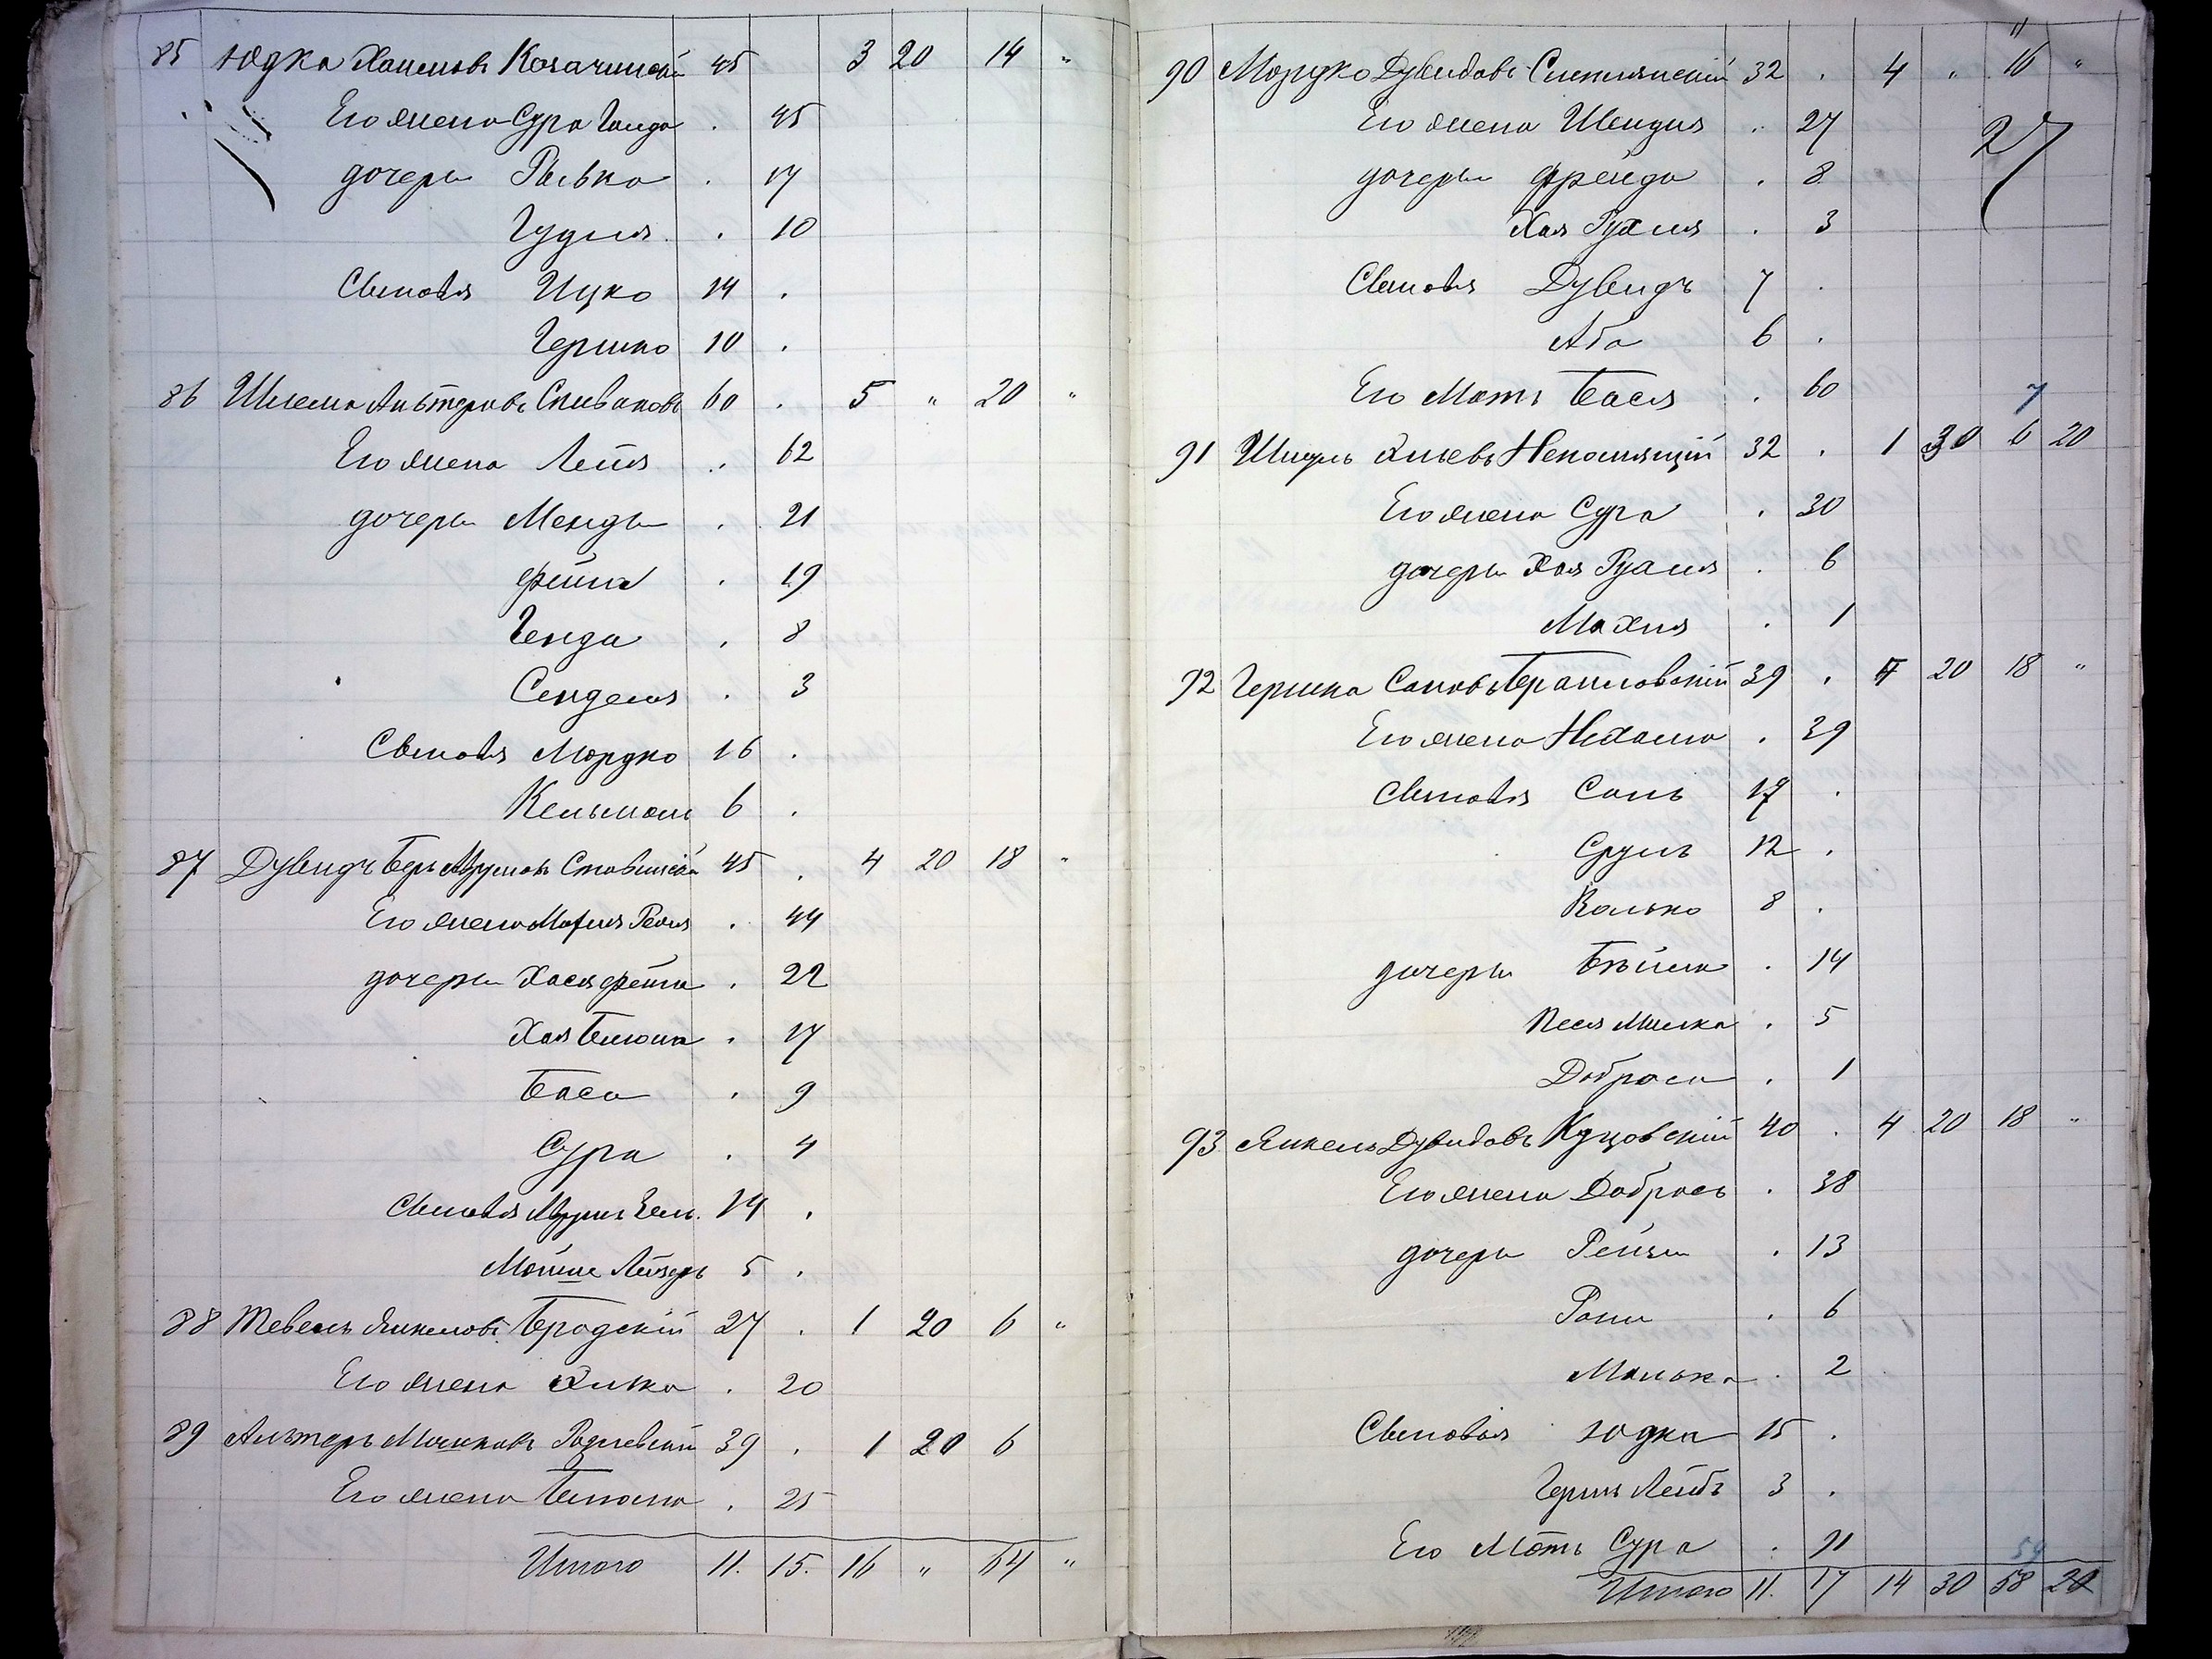 85 Юдка Хаимовъ Козачинскій 45 3 20 14 "
Его жена Сура Гинда . 45
дочери Рывка . 17
Гудля . 10
Сыновья Ицко 14 .
Гершко 10 .
86 Шлема Альтеровъ Спиваковъ 60 . 5 " 20 "
Его жена Лея . 62
дочери Менди . 21
Фейга . 19
Генда . 8
Сендля . 3
Сыновья Мордко 16 .
Кельманъ 6 .
87 Дувидъ Беръ Ставискій 45 . 4 20 18 "
Его жена . 44
дочери Хася Фейга . 22
Хая . 17
Баса . 9
Сура . 4
Сыновья 14 .
Мойше Лейзеръ 5 .
88 Тевель Янкелевъ Бродскій 27 . 1 20 6 "
Его жена Хивка . 20
89 Альтеръ Мошковъ 39 . 1 20 6
Его жена . 25
Итого 11. 15. 16 " 64 "
90 Мордко Дувидовъ 32 . 4 " 16 "
27
Его жена Шендля . 27
дочери Фрейда . 8
Хая Рухля . 3
Сыновья Дувидъ 7 .
Аба 6 .
Его Мать Бася . 60
7
91 Хаевъ Непомнящій 32 . 1 30 6 20
Его жена Сура . 30
дочери Хая Рухля . 6
Махля . 1
92 Гершка 39 . 4 20 18 "
Его жена Нехама . 39
Сыновья 17 .
Сруль 12 .
Волько 8 .
дочери Бейла . 14
Песя Милка . 5
Доброса . 1
93 Янкель Дувидовъ Куцовскій 40 . 4 20 18 "
Его жена Доброся . 38
дочери Рейзи . 13
. 6
Малька . 2
Сыновья Юдка 15 .
Гершъ Лейбъ 3 .
Его Мать Сура . 71
59
Итого 11. 17 14 30 58 20